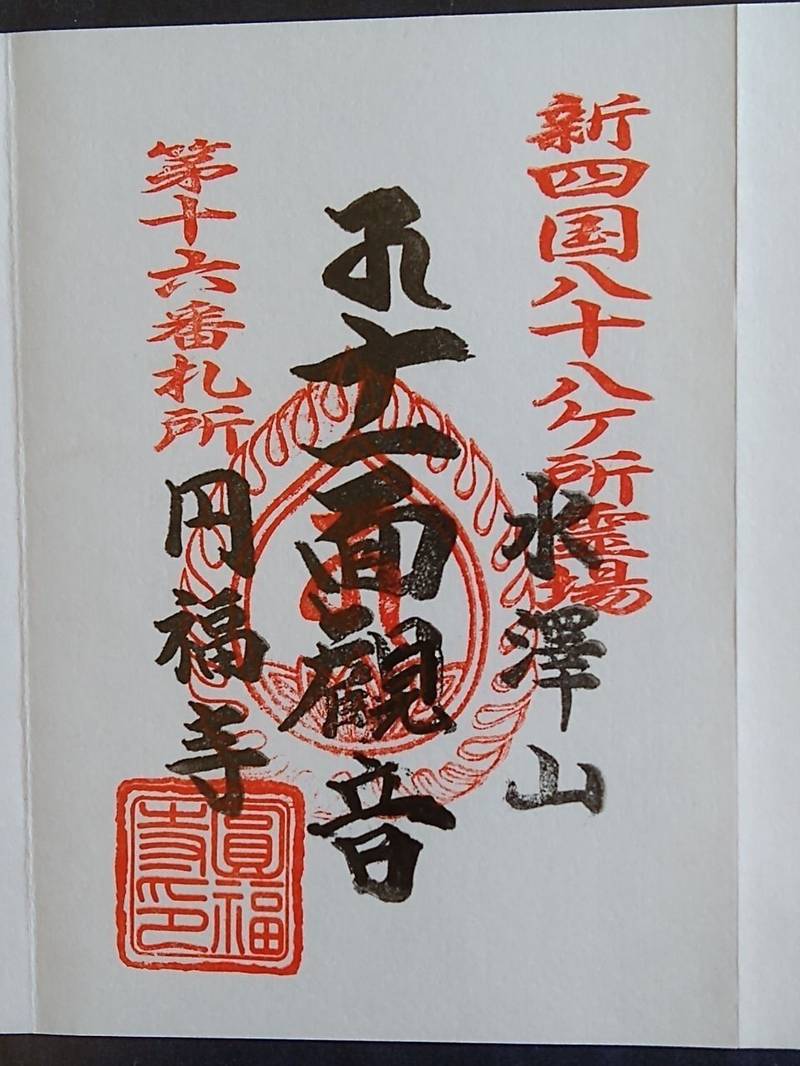 新四国八十八ケ所霊場
水澤山
十一面觀音
第十六番札所
円福寺
圓福
寺印